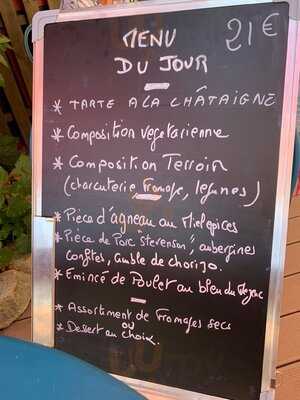 MENU 21€
DU JOUR
* TARTE A LA CHÂTAIGNE
* Composition vegetarienne
* Composition Terroir
(charcuterie, fromage, legumes)
* Pièce d'agneau au Miel epices
* Pièce de Porc "Stevenson", aubergines
confites, crumble de chorizo.
* Emincé de Poulet au bleu du Mezenc
* Assortiment de fromages secs
ou
* Dessert au choix.